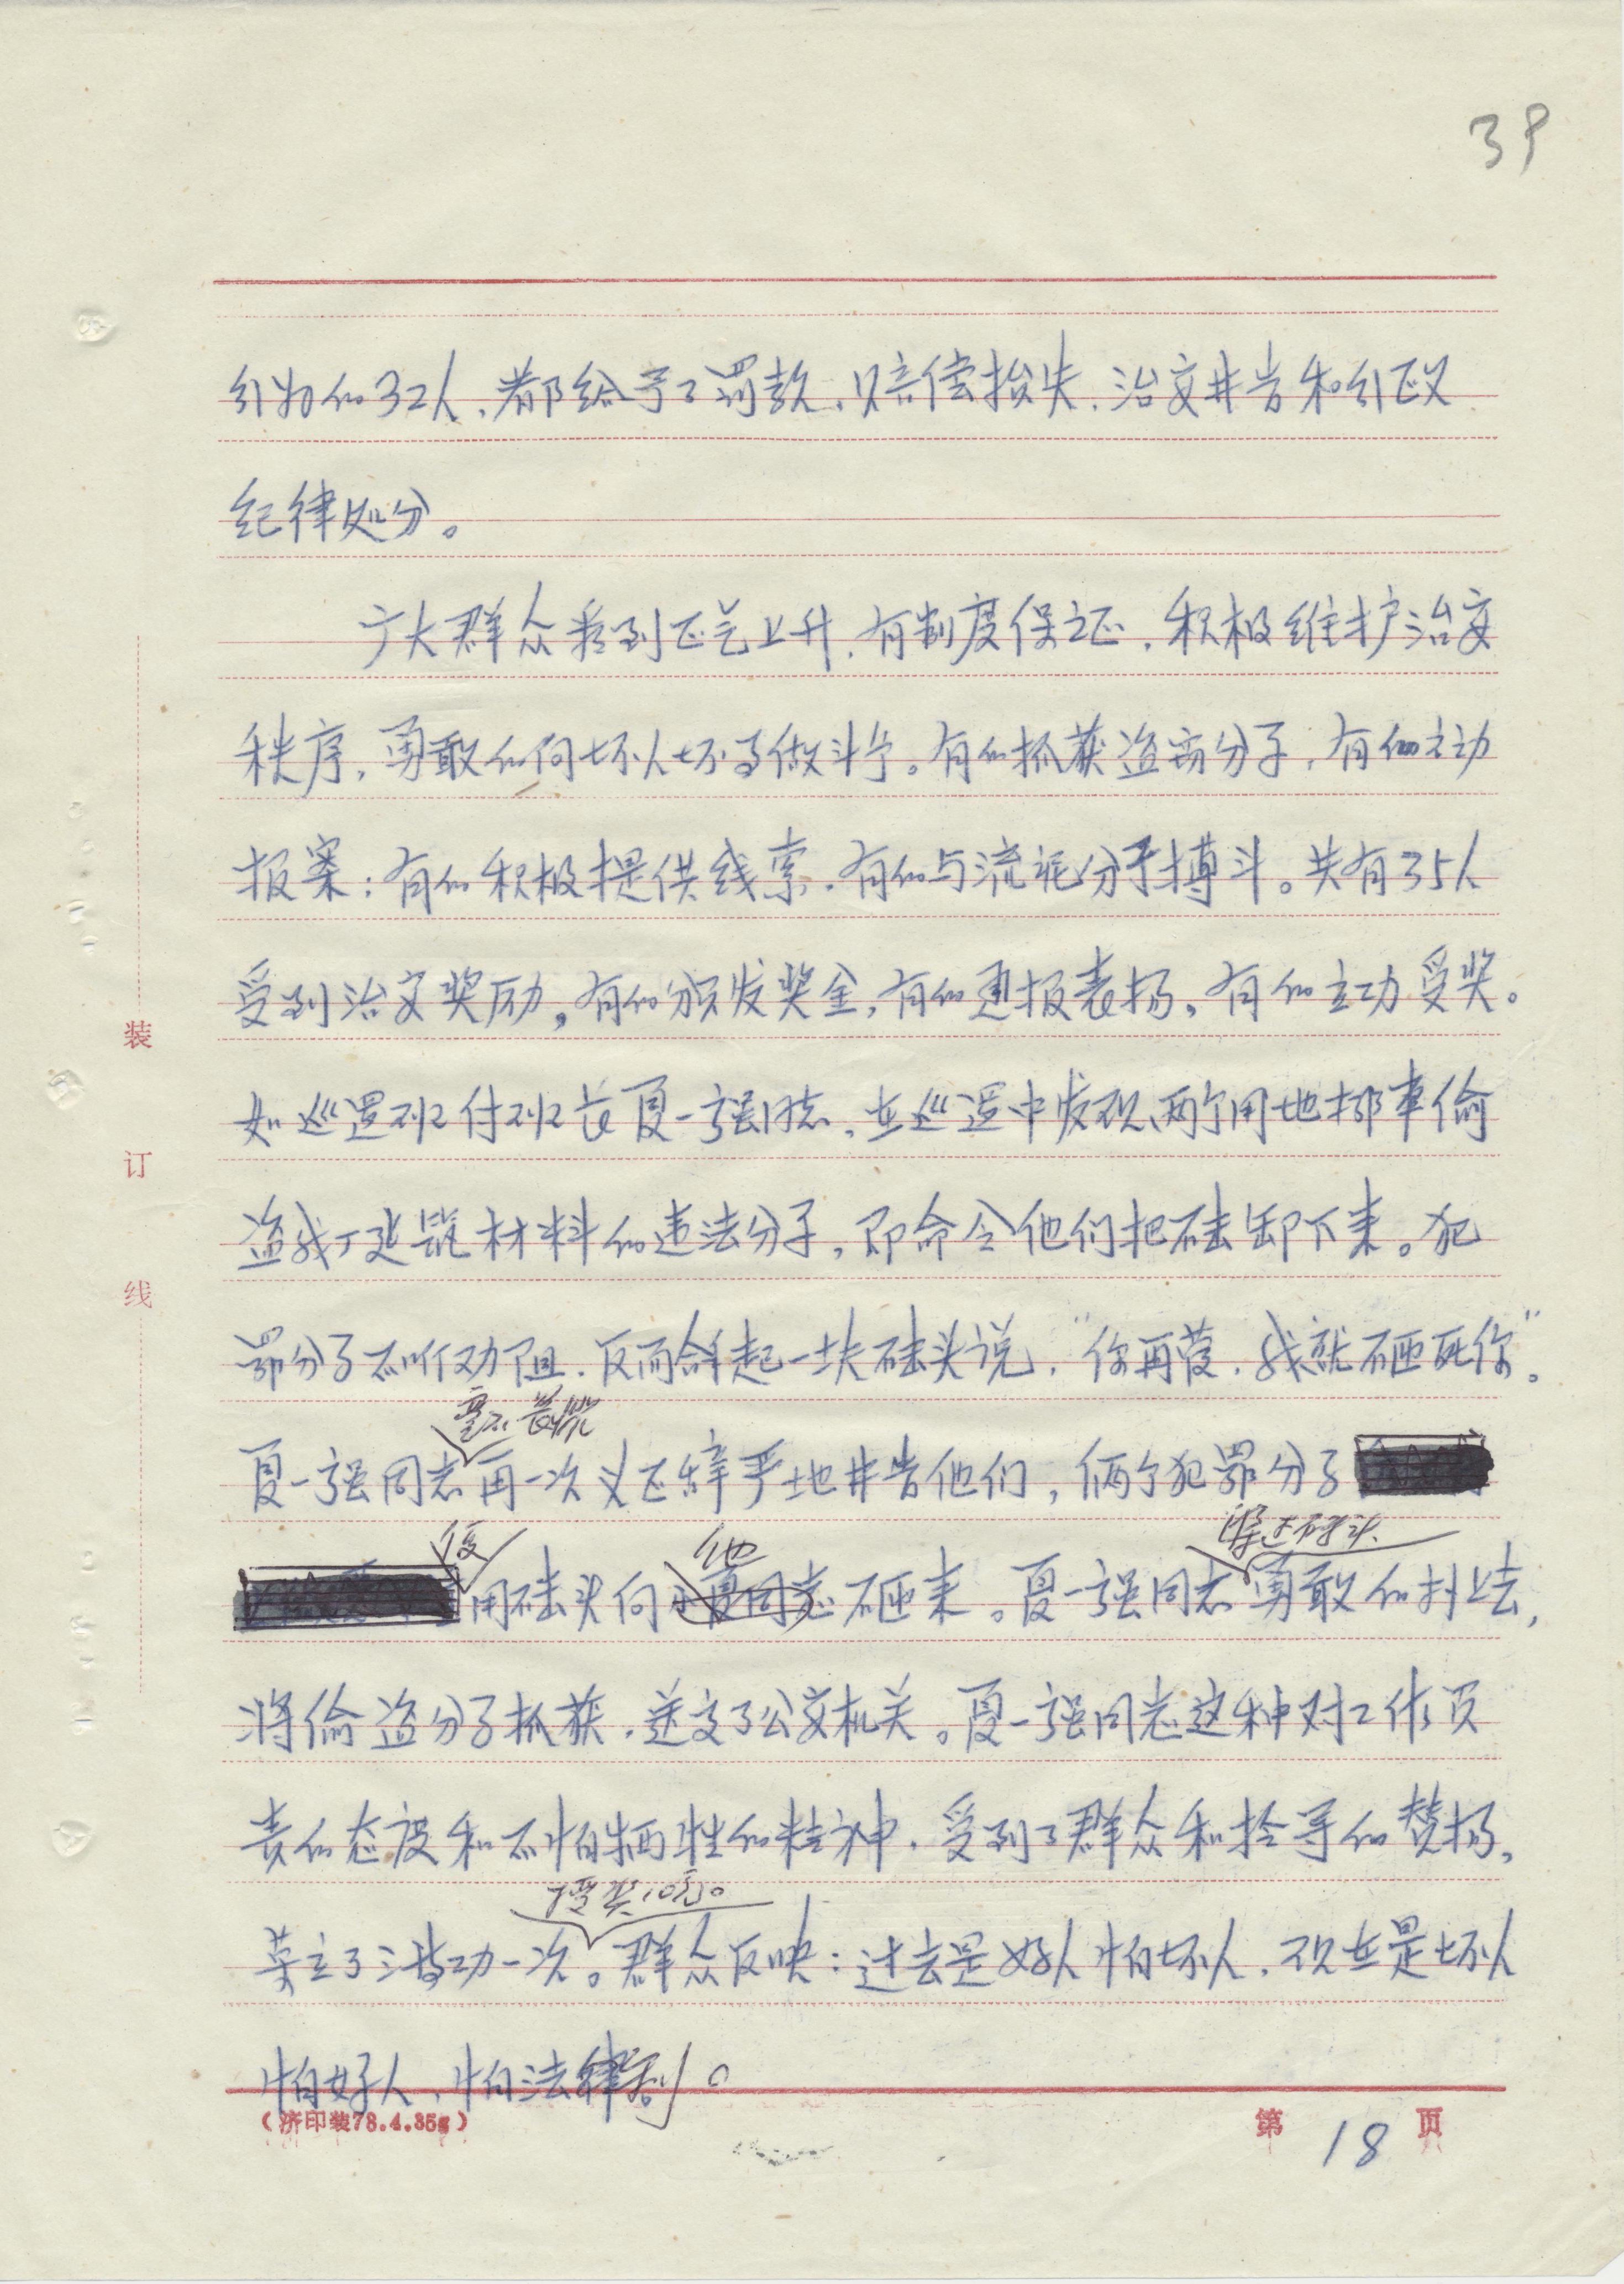 39
行为的32人、都给予了罚款、赔偿损失、治安井告和行政
纪律处分。
广大群众看到正气上升、有制度保证、积极维护治安
秩序、勇敢的向坏人坏事做斗争。有的抓获盗窃分子、有的主动
报案；有的积极提供线索、有的与流氓分子搏斗。共有35人
受到治安奖励，有的颁发奖金，有的通报表扬、有的立功受奖。
如巡逻班付班长夏一强同志、在巡逻中发现两个用地排车偷
盗我厂建筑材料的违法分子，即命令他们把砖卸下来。犯
罪分子不听劝阻、反而拿起一块砖头说，"你再管、我就砸死你"。
毫不畏惧
夏一强同志再一次义正辞严地井告他们，俩个犯罪分子
便 他 躲过砖头
用砖头向夏同志砸来。夏一强同志勇敢的扑上去，
将偷盗分子抓获、送交了公安机关。夏一强同志这种对工作负
责的态度和不怕牺牲的精神、受到了群众和领导的赞扬、
授奖10元。
荣立了三等功一次。群众反映：过去是好人怕坏人、现在是坏人
怕好人、怕法律。
装
订
线
（济印装78.4.35g）
第 18 页